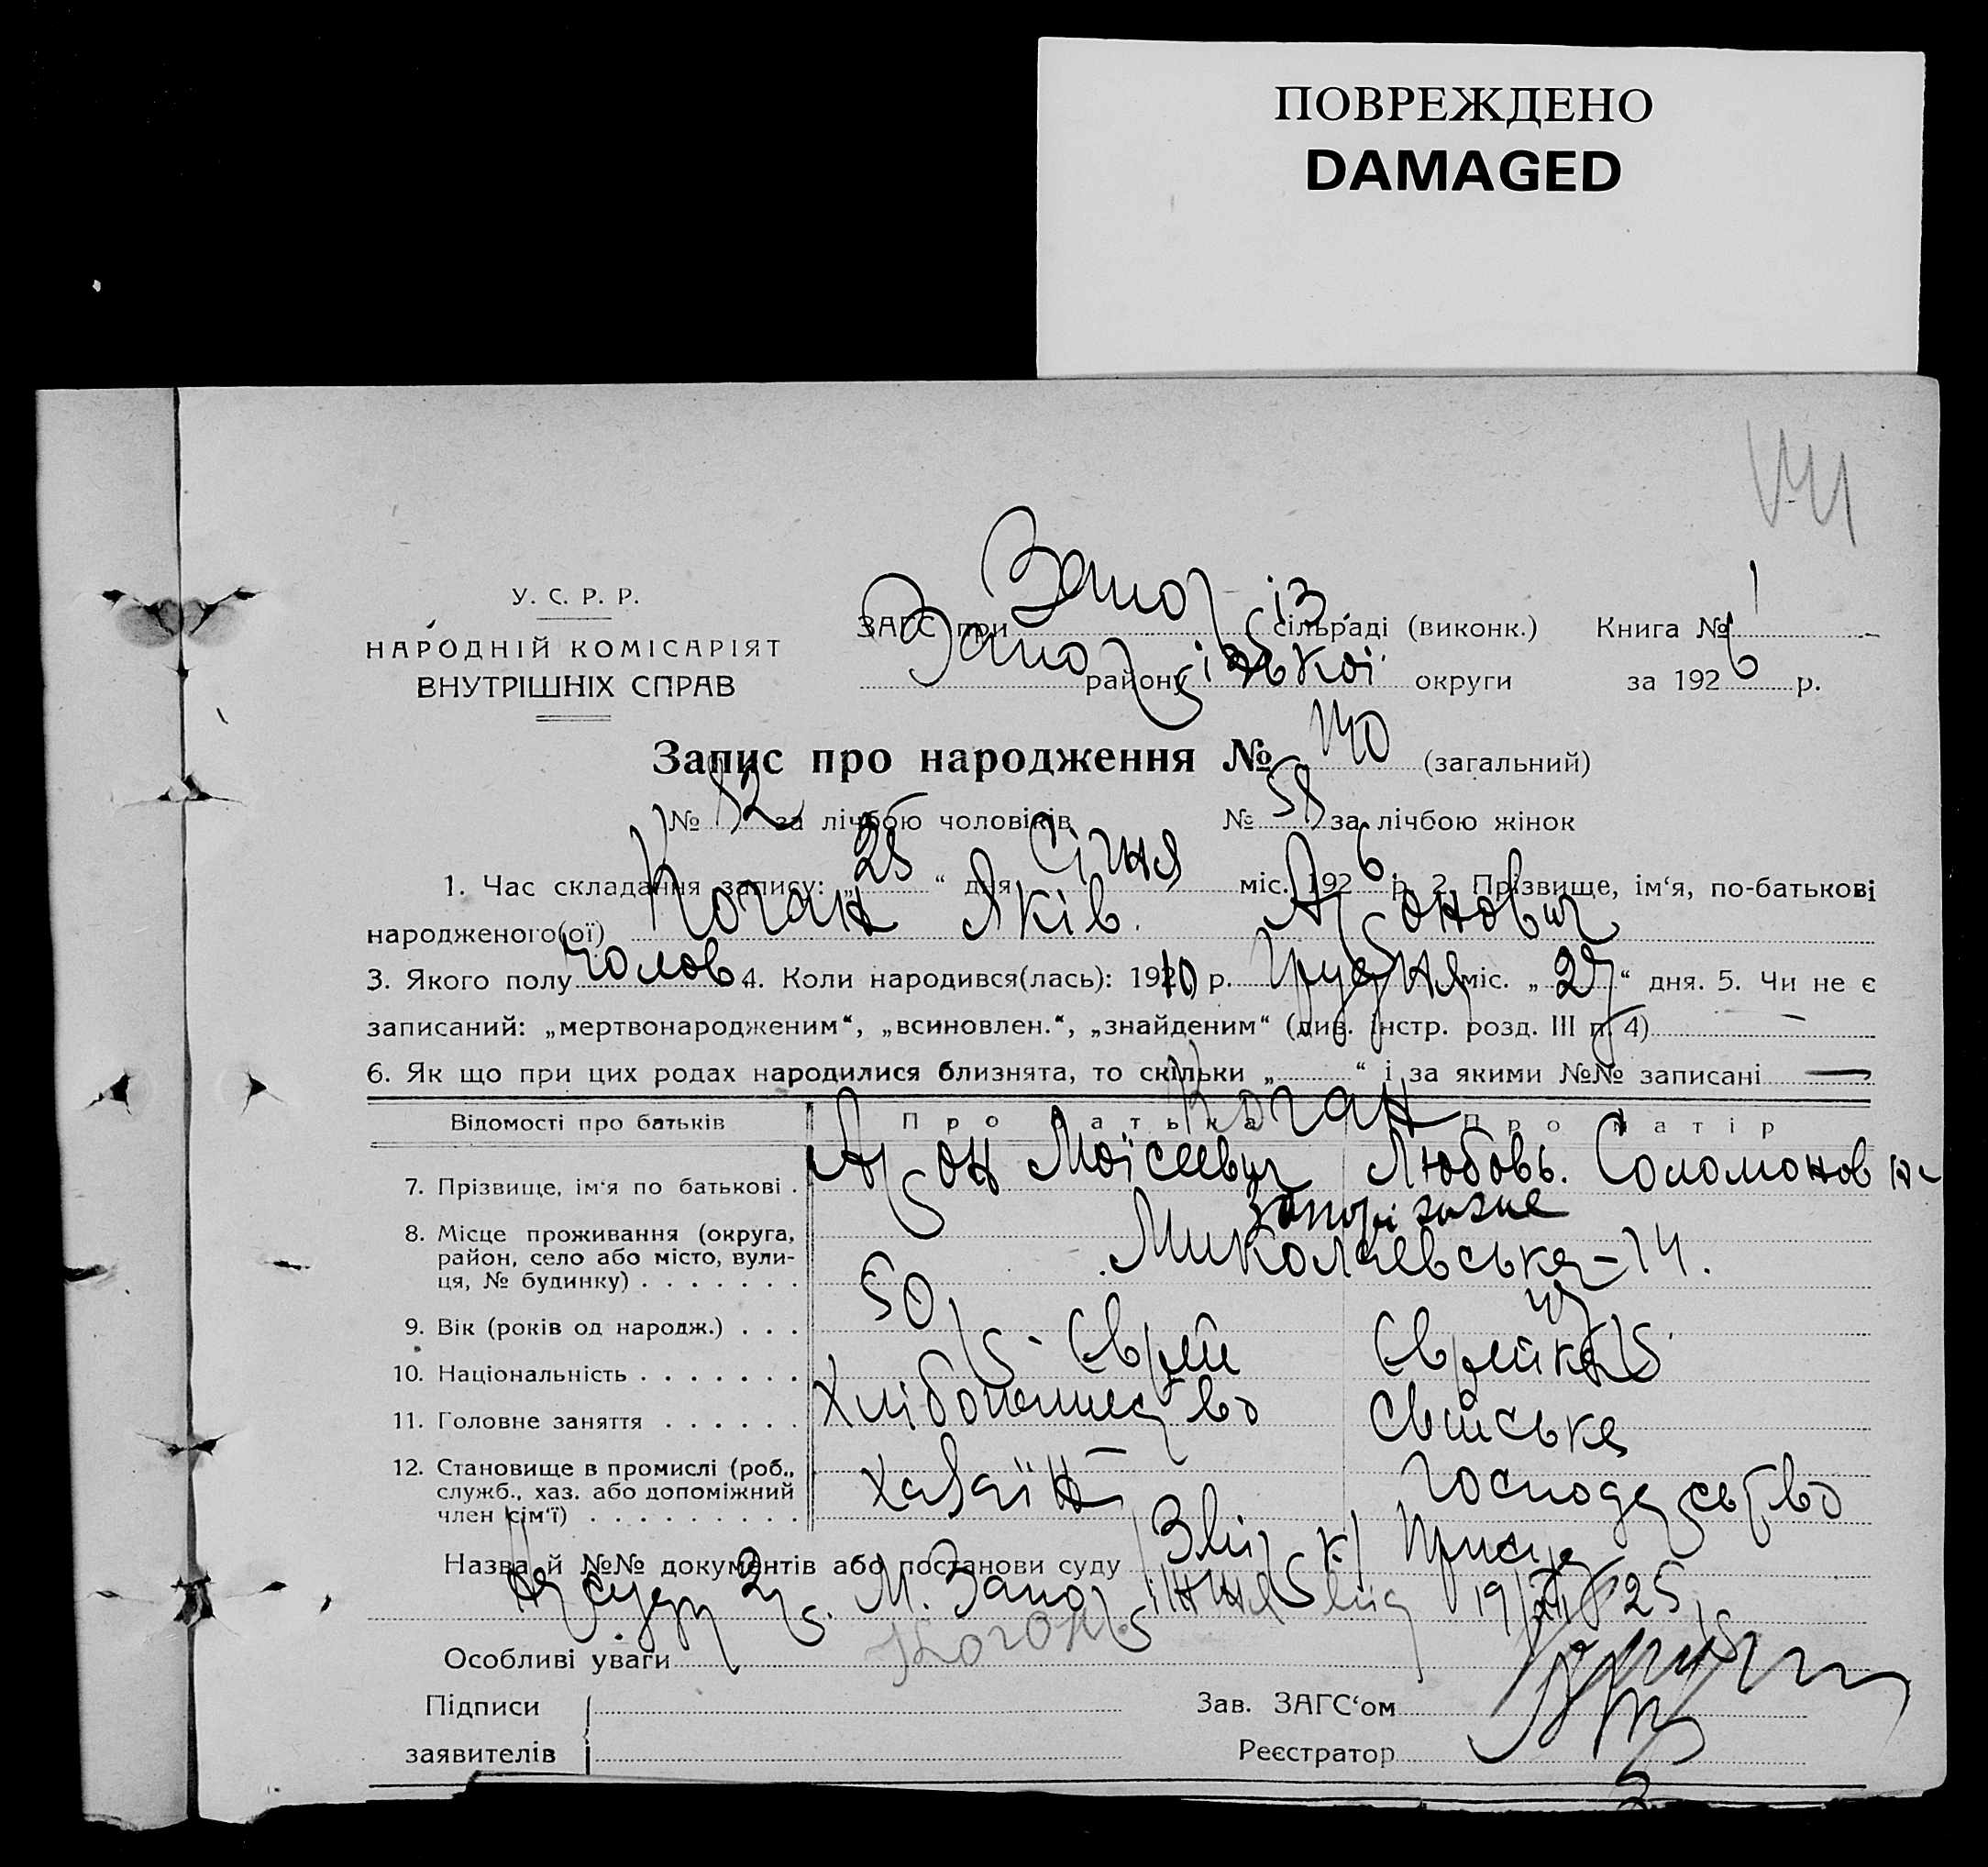 ПОВРЕЖДЕНО
DAMAGED
У. С. Р. Р.
НАРОДНІЙ КОМІСАРІЯТ
ВНУТРІШНІХ СПРАВ
ЗАГС при Запорiз. сільраді (виконк.) Книга № 1
Запор району ізької округи за 1926 р.
Запис про народження № 140 (загальний)
№ 82 за лічбою чоловіків № 58 за лічбою жінок
1. Час складання запису: „25“ дня Січня міс. 1926 р. 2. Прізвище, ім‘я, по-батькові
народженого(ої) Коган Яків. Аронович
3. Якого полу чолов 4. Коли народився(лась): 1910 р. Грудня міс. „27“ дня. 5. Чи не є
записаний: „мертвонародженим“, „всиновлен.“, „знайденим“ (див. інстр. розд. III п. 4) —
6. Як що при цих родах народилися близнята, то скільки „ “ і за якими №№ записані —
Відомості про батьків Про батька Про матір
Коган
7. Прізвище, ім‘я по батькові . Арон Мойсеевич Любовь. Соломонов
8. Місце проживання (округа, район, село або місто, вулиця, № будинку) Запоріжжя
Миколаевська – 14.
9. Вік (років од народж.) . . . 50 р.
10. Національність . . . . . . . Єврей Єврейка
11. Головне заняття . . . . . . Хлібопашество Свійське
12. Становище в промислі (роб., служб., хаз. або допоміжний член сім‘ї) Хазяїн господарство
Назва й №№ документів або постанови суду
Нарсуду 2 р. М. Запор від 19/XII 25 р.
Особливі уваги Когон
Підписи заявителів
Зав. ЗАГС‘ом
Реєстратор